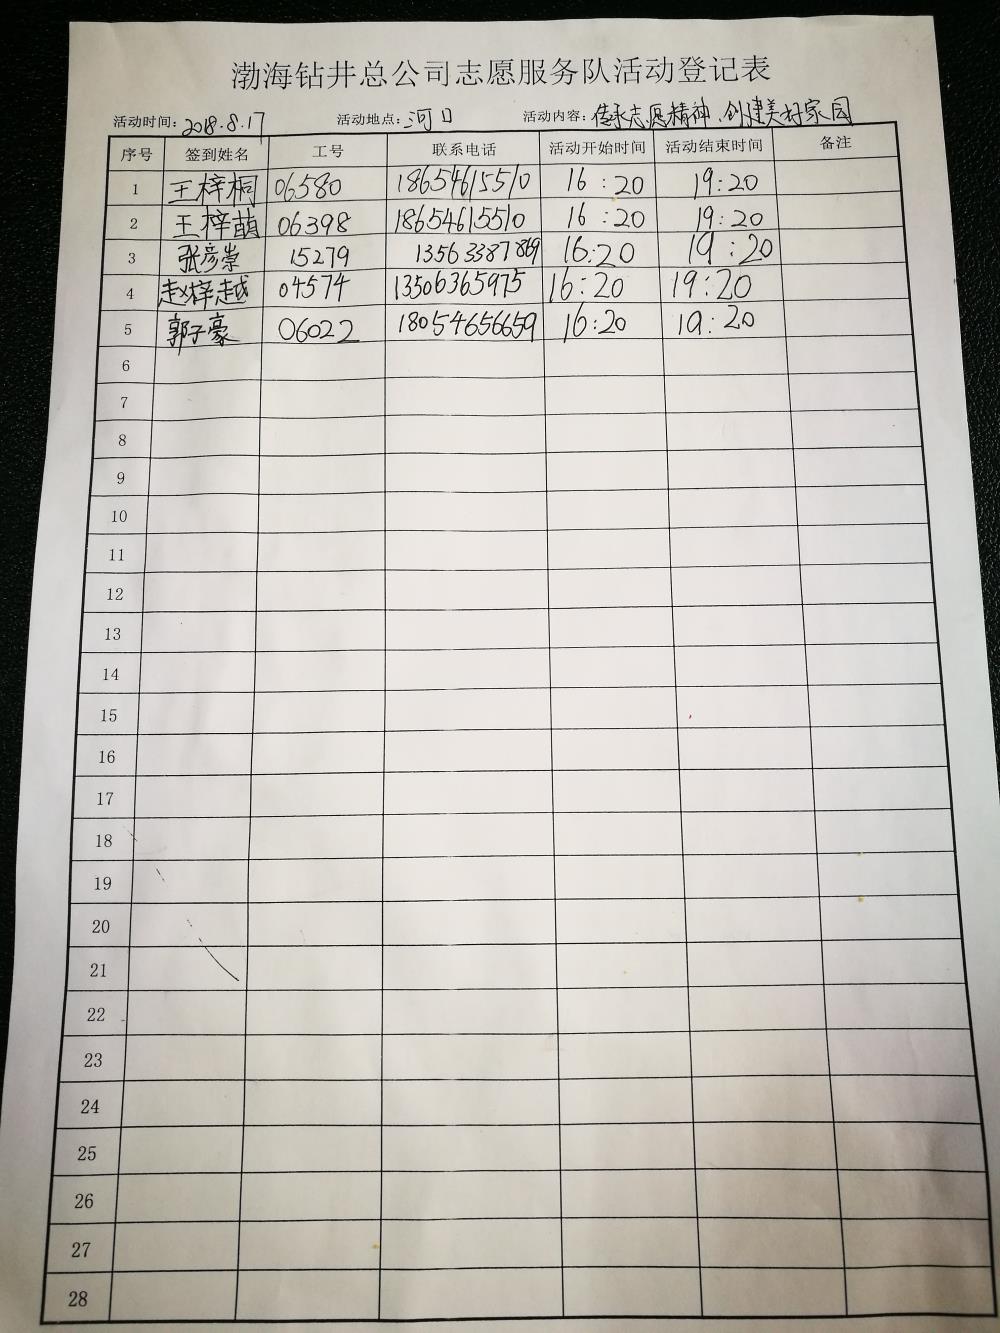 渤海钻井总公司志愿服务队活动登记表
活动时间：2018.8.17 活动地点：河口 活动内容：传承志愿精神、创建美好家园
序号 签到姓名 工号 联系电话 活动开始时间 活动结束时间 备注
1 王梓桐 06580 18654615510 16:20 19:20
2 王梓萌 06398 18654615510 16:20 19:20
3 张彦崇 15279 13563387869 16:20 19:20
4 赵梓越 04574 13506365975 16:20 19:20
5 郭子豪 06022 18054656659 16:20 19:20
6
7
8
9
10
11
12
13
14
15
16
17
18
19
20
21
22
23
24
25
26
27
28